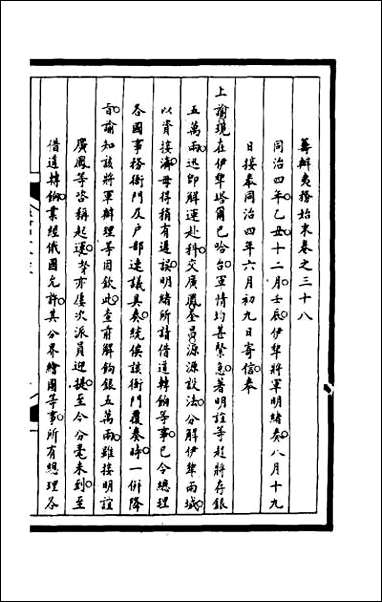 籌辦夷務始末卷之三十八
同治四年乙丑十二月壬辰伊犂將軍明緒奏八月十九
日接奉同治四年六月初九日寄信奉
上諭現在伊犂塔爾巴哈台軍情均甚緊急著明誼等趕將存銀
五萬兩迅即解運赴科交廣鳳奎昌源源設法分解伊犂兩城
以資接濟毋得稍有遲誤明緒所請借道轉餉等事已令總理
各國事務衙門及戶部速議具奏統俟該衙門覆奏時一併降
旨諭知該將軍辦理等因欽此查前解餉銀五萬兩雖接明誼
廣鳳等咨稱起運奴才屢次派員迎提至今分毫未到至
借道轉餉業經俄國允許其分界繪圖等事所有總理各